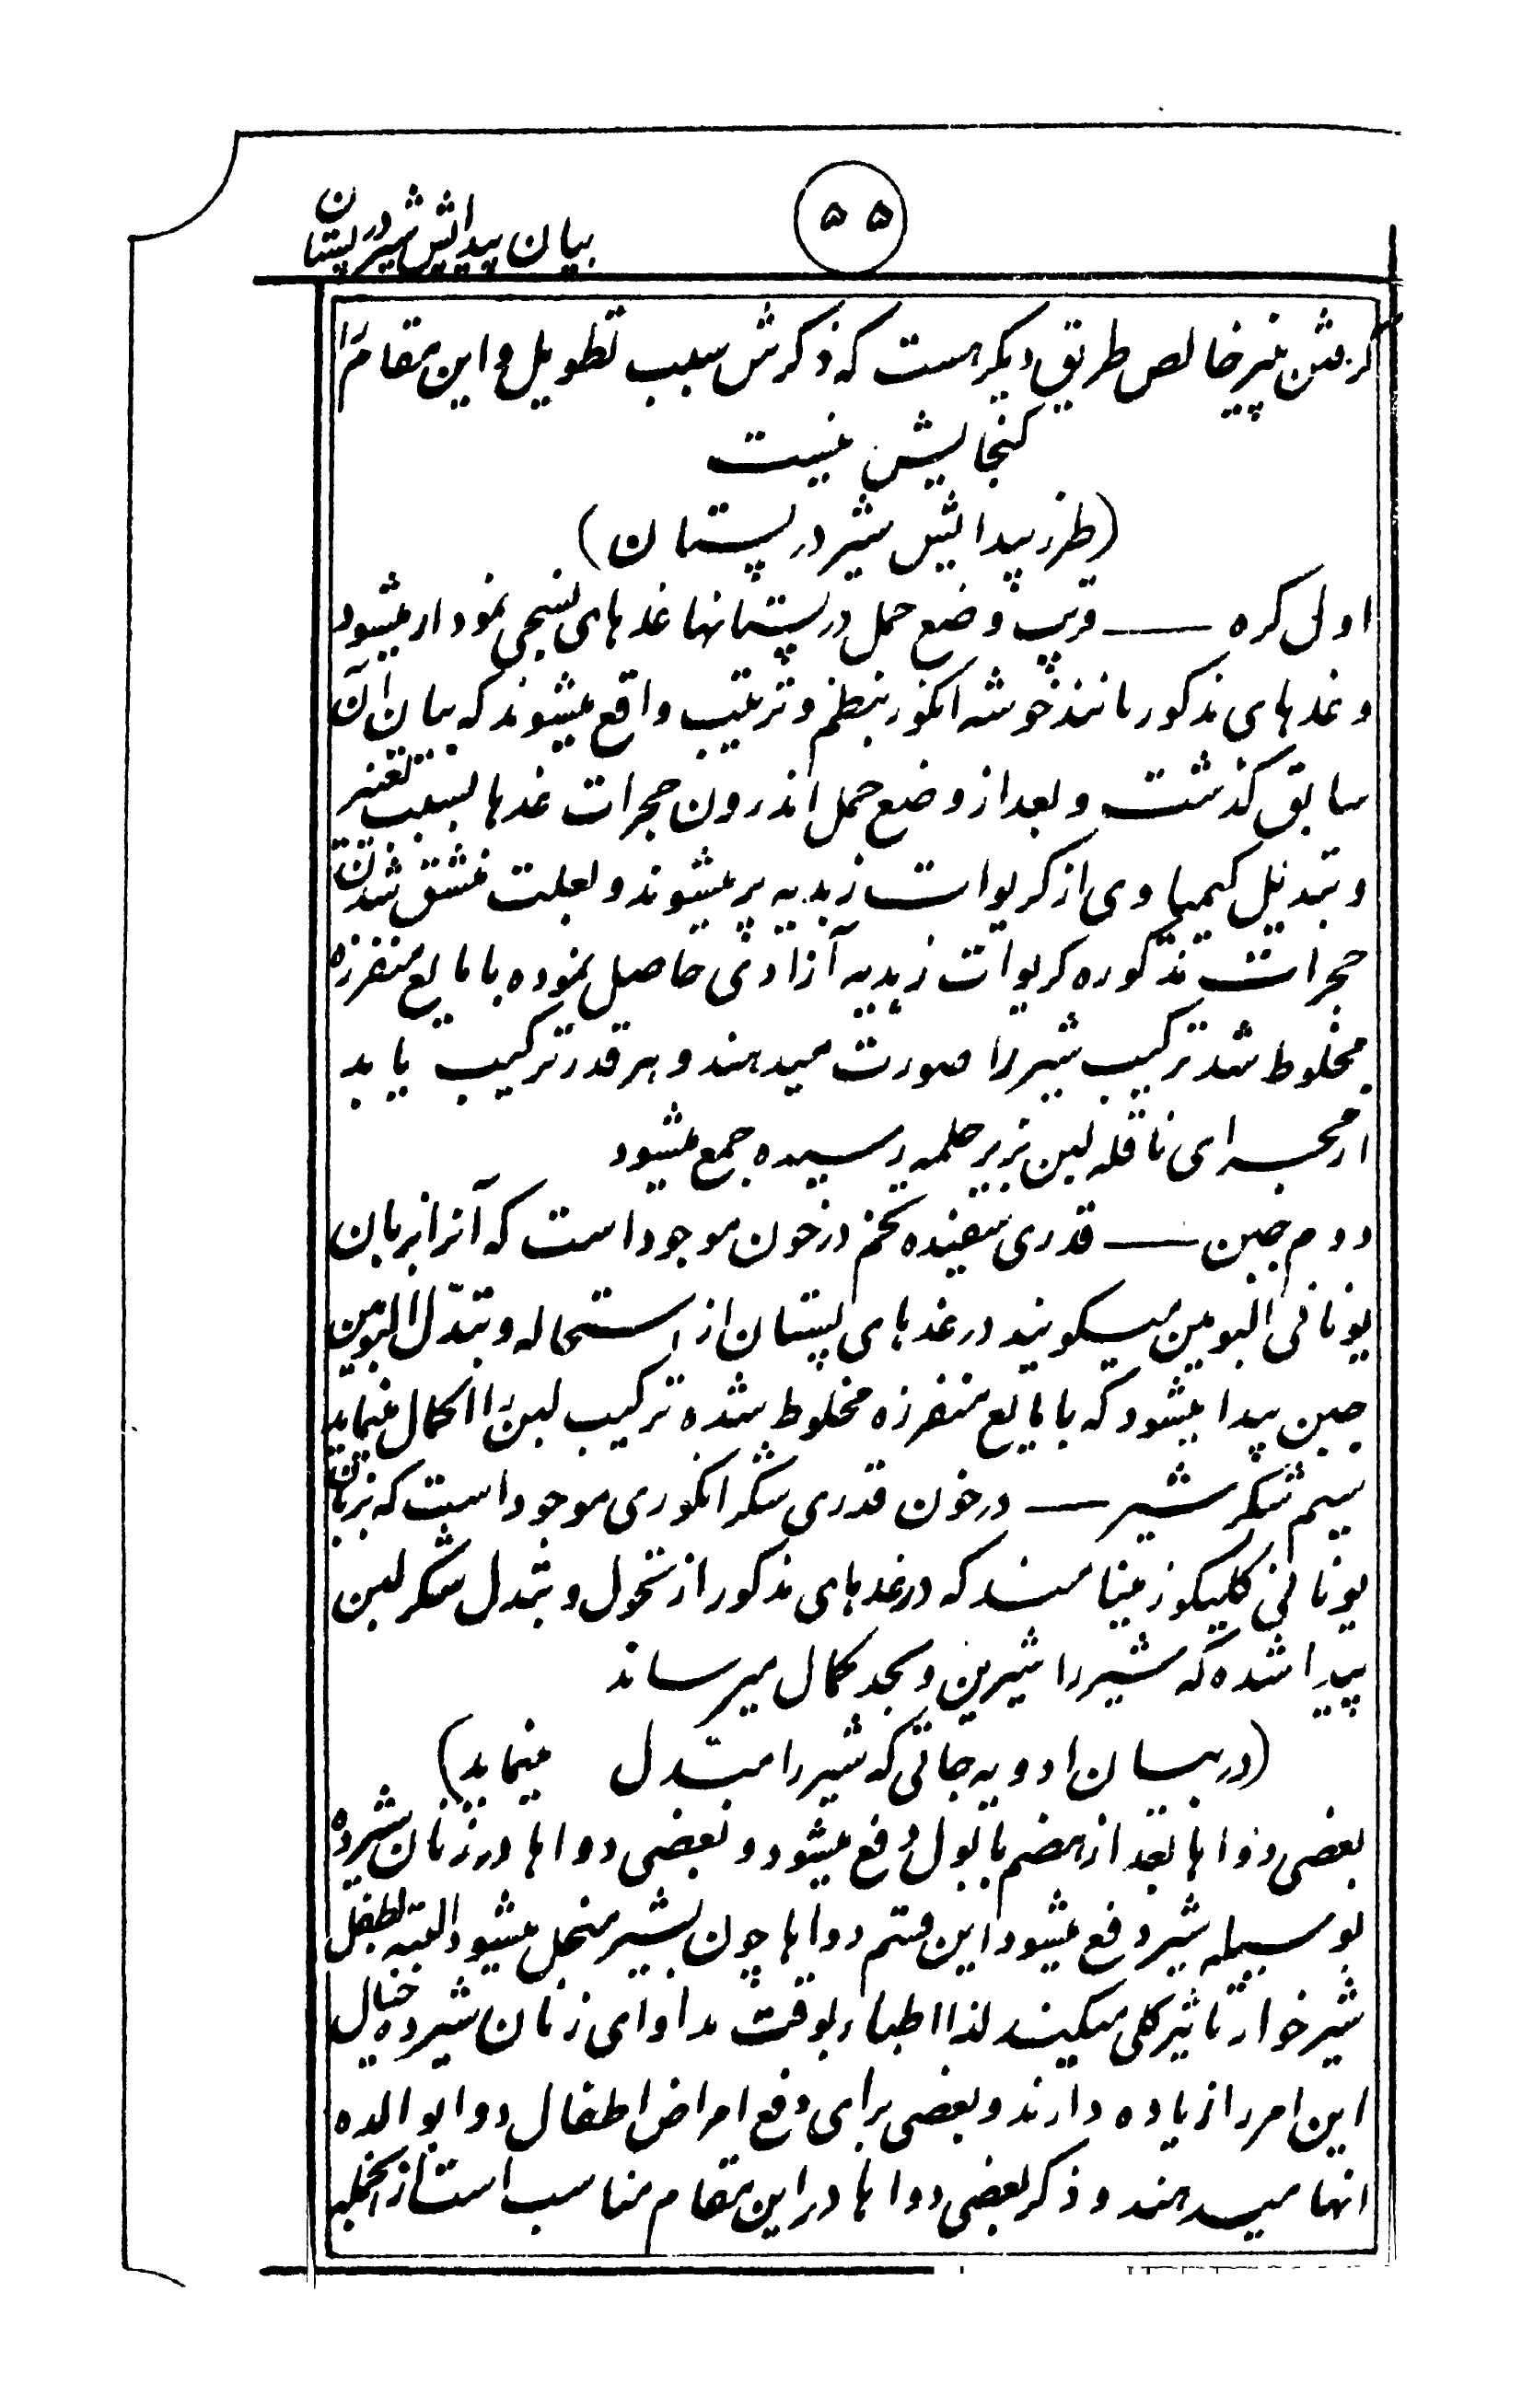 بیان پیدایش شیر در پستان
۵۵
گرفتن شیر خالص طریق دیگر هست که ذکرش سبب تطویل و این مقام را
گنجایش نیست
(طرز پیدایش شیر در پستان)
اولی کره — قریب وضع حمل در پستانها غدهای نسجی نمودار میشود
و غدهای مذکور مانند خوشه انگور بنظم و ترتیب واقع میشوند که بیان آن
سابق گذشت و بعد از وضع حمل اندرون حجرات غدها بسبب تغییر
و تبدیل کیمیاوی از کریوات زبدیه پر میشوند و بعلت منشق شدن
حجرات مذکوره کریوات زبدیه آزادی حاصل نموده با مایع منفرزه
مخلوط شد ترکیب شیر را صورت میدهند و هر قدر ترکیب یابد
از مجرای ناقله لبن بزیر حلمه رسیده جمع میشود
دوم جبن — قدری سفیده تخم در خون موجود است که آنرا بزبان
یونانی البومین میگویند در غدهای پستان از استحاله و تبدّل البومین
جبن پیدا میشود که با مایع منفرزه مخلوط شده ترکیب لبن را اکمال مینماید
سیم شکر شیر — در خون قدری شکر انگوری موجود است که بزبان
یونانی گلیکوز مینامند که در غدهای مذکور از تحول و تبدل شکر لبن
پیدا شده که شیر را شیرین و بحد کمال میرساند
(در بیان ادویه جاتی که شیر را مبتدل مینماید)
بعضی دواها بعد از هضم با بول دفع میشود و بعضی دواها در زنان شیرده
بوسیله شیر دفع میشود این قسم دواها چون بشیر منحل میشود البته بطفل
شیرخوار تاثیر کلی میکنند لذا اطباء بوقت مداوای زنان شیرده خیال
این امر را زیاده دارند و بعضی برای دفع امراض اطفال دوا بوالده
انها میدهند و ذکر بعضی دواها در این مقام مناسب است از انجمله